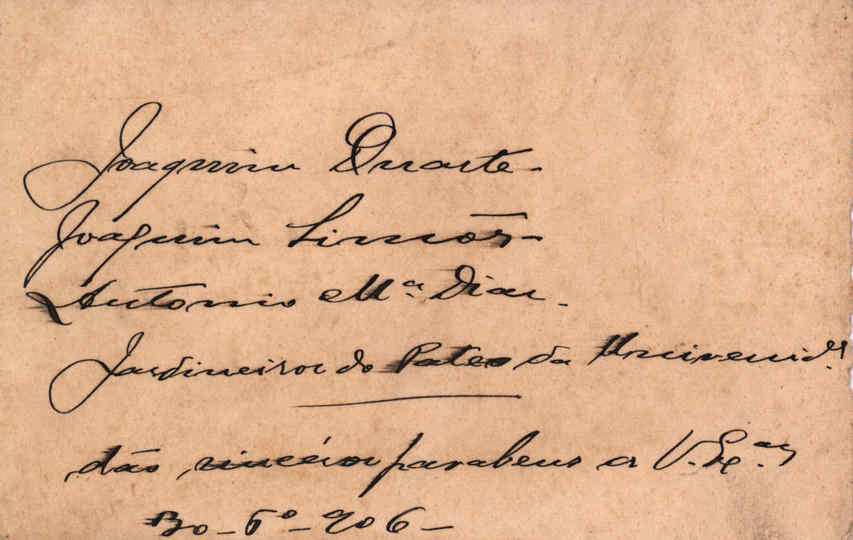 Joaquim Duarte -
Joaquim Simões -
Antonio Mª Dias -
Jardineiros do Pateo da Universidᵉ
dão sinceros parabens a V. Exᵃˢ
30 - 6º - 906 -